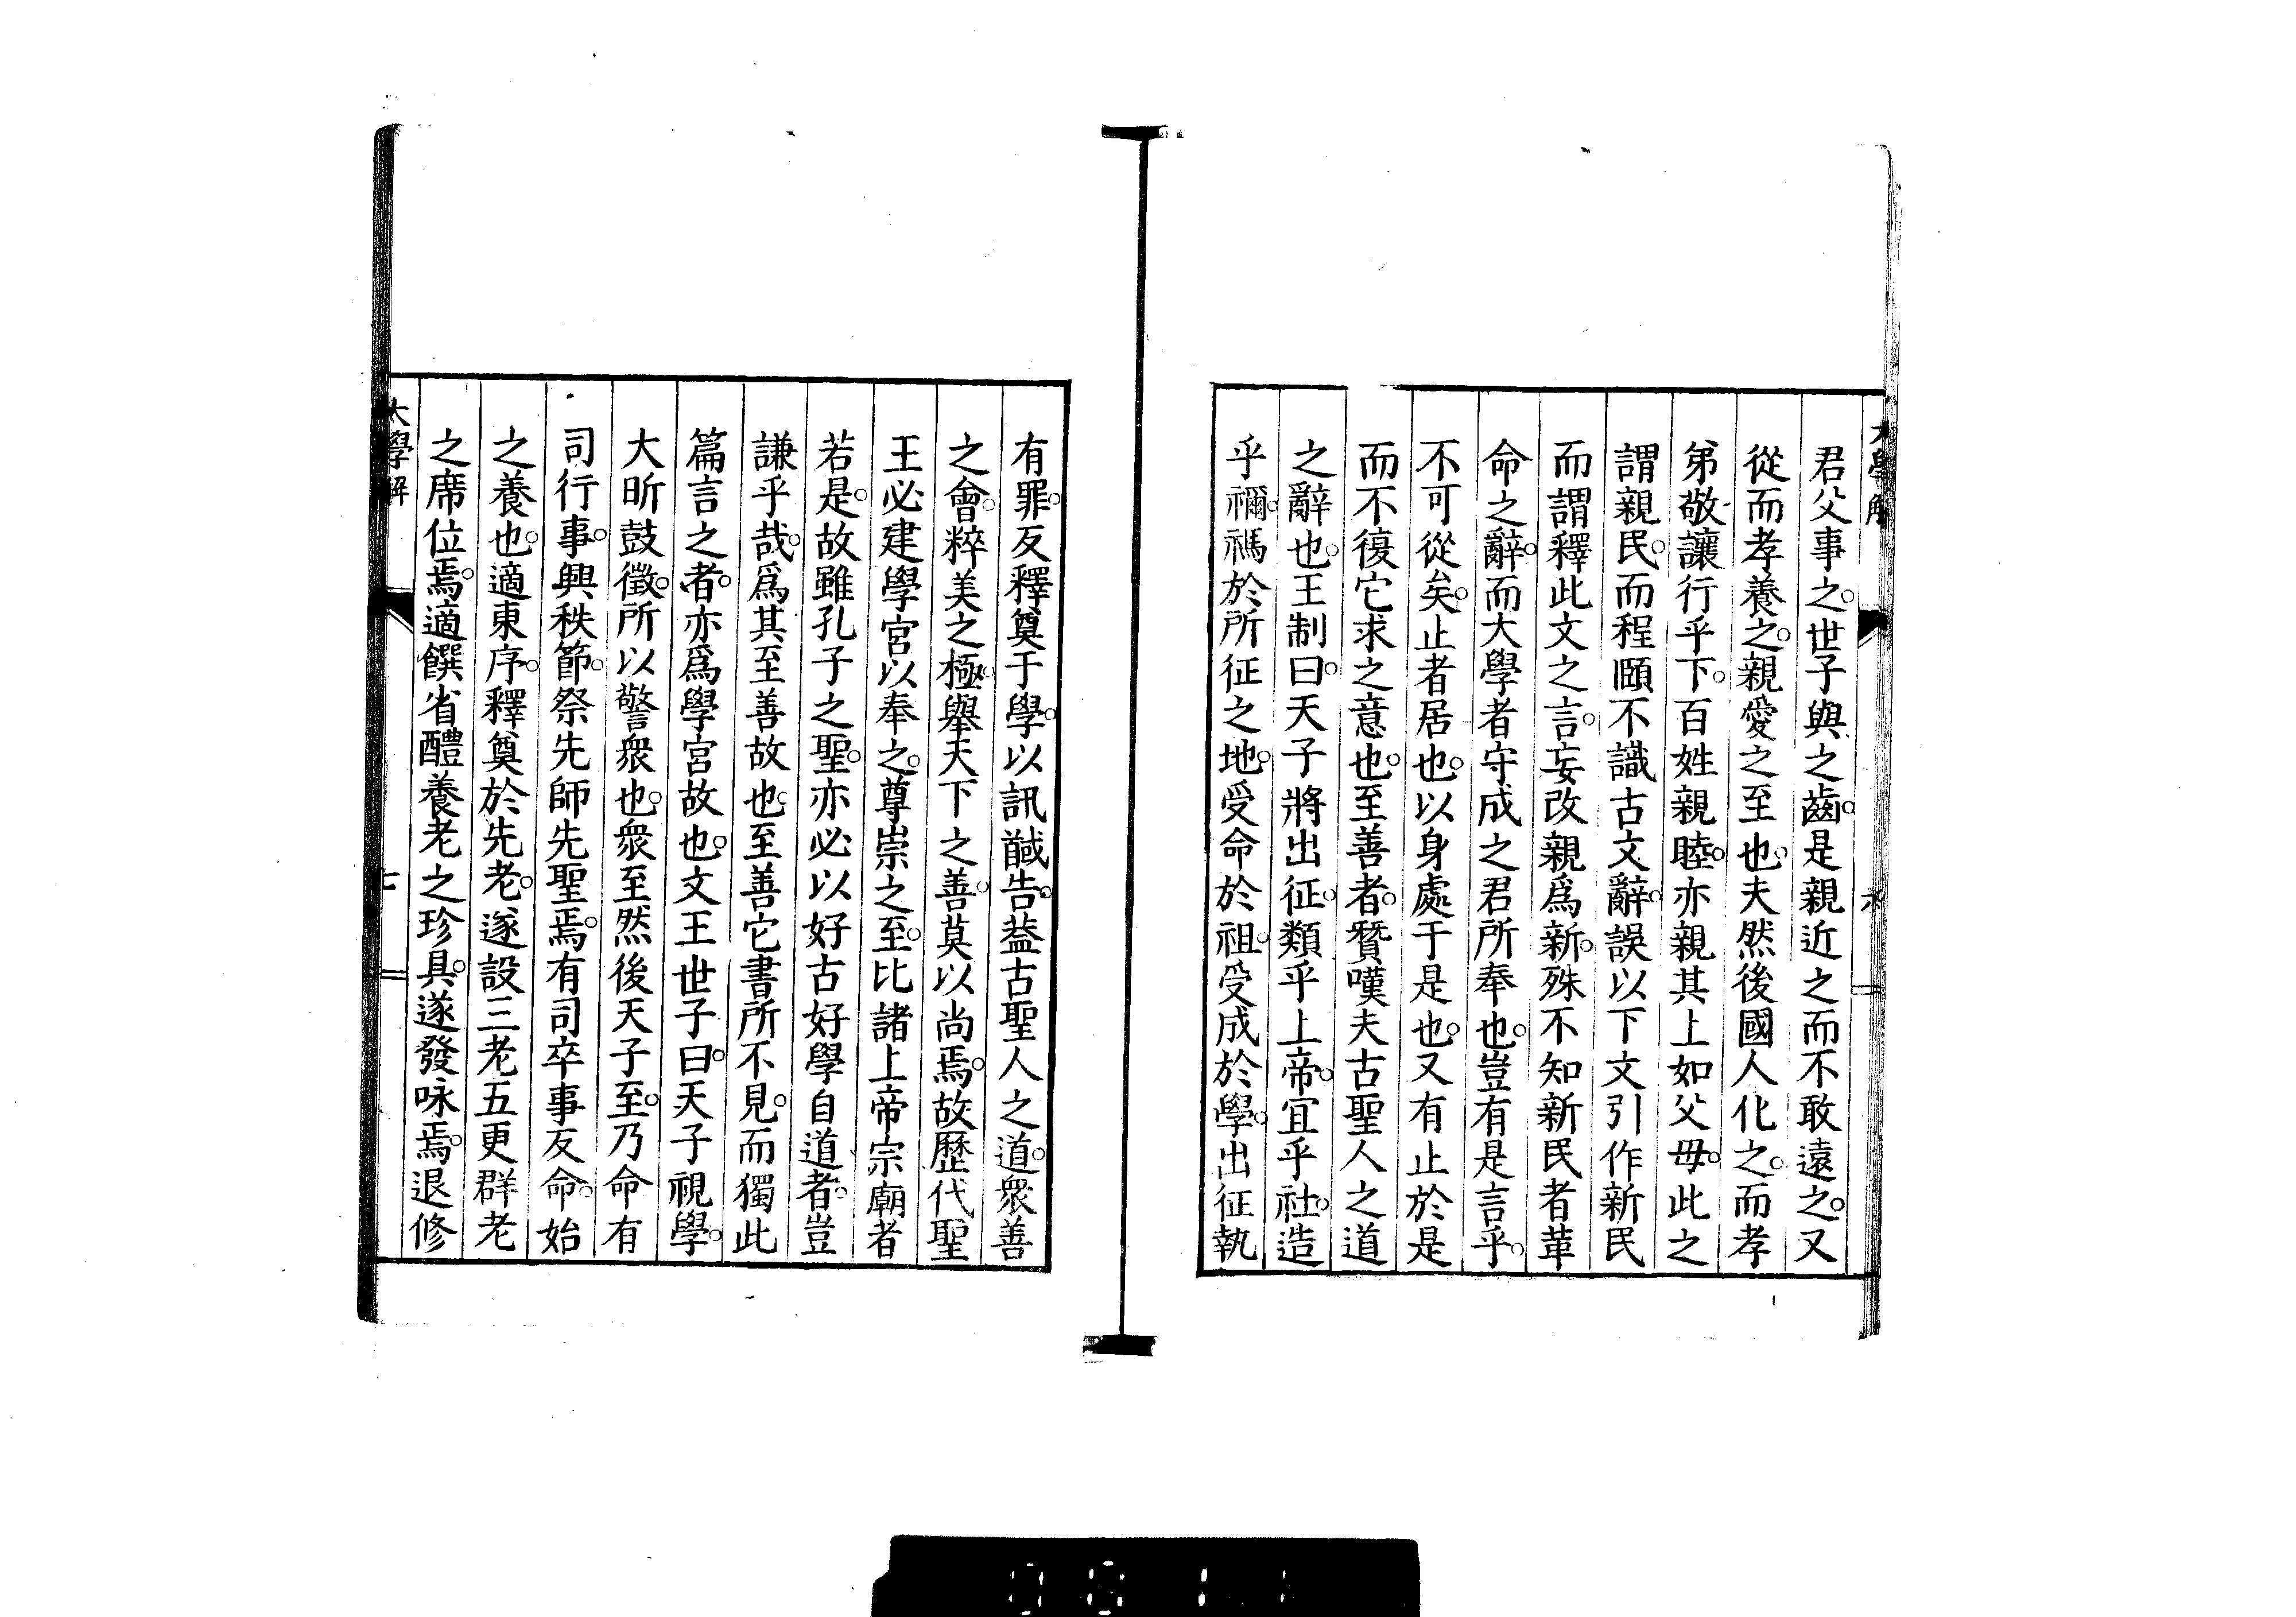 大學解
六
君父事之。世子與之齒。是親近之而不敢遠之。又
從而孝養之。親愛之至也。夫然後國人化之。而孝
弟敬讓行乎下。百姓親睦。亦親其上如父母。此之
謂親民。而程頤不識古文辭。誤以下文引作新民
而謂釋此文之言。妄改親爲新。殊不知新民者革
命之辭。而大學者守成之君所奉也。豈有是言乎。
不可從矣。止者居也。以身處于是也。又有止於是
而不復它求之意也。至善者。贊嘆夫古聖人之道
之辭也。王制曰。天子將出征。類乎上帝。宜乎社。造
乎禰。禡於所征之地。受命於祖。受成於學。出征執
有罪。反釋奠于學。以訊馘告。葢古聖人之道。衆善
之會。粹美之極。舉天下之善。莫以尚焉。故歷代聖
王必建學宮以奉之。尊崇之至。比諸上帝宗廟者
若是。故雖孔子之聖。亦必以好古好學自道者。豈
謙乎哉。爲其至善故也。至善它書所不見。而獨此
篇言之者。亦爲學宮故也。文王世子曰。天子視學。
大昕鼓徵。所以警衆也。衆至然後天子至。乃命有
司行事。興秩節。祭先師先聖焉。有司卒事反命。始
之養也。適東序。釋奠於先老。遂設三老五更群老
之席位焉。適饌省醴養老之珍具。遂發咏焉。退修
大學解
七